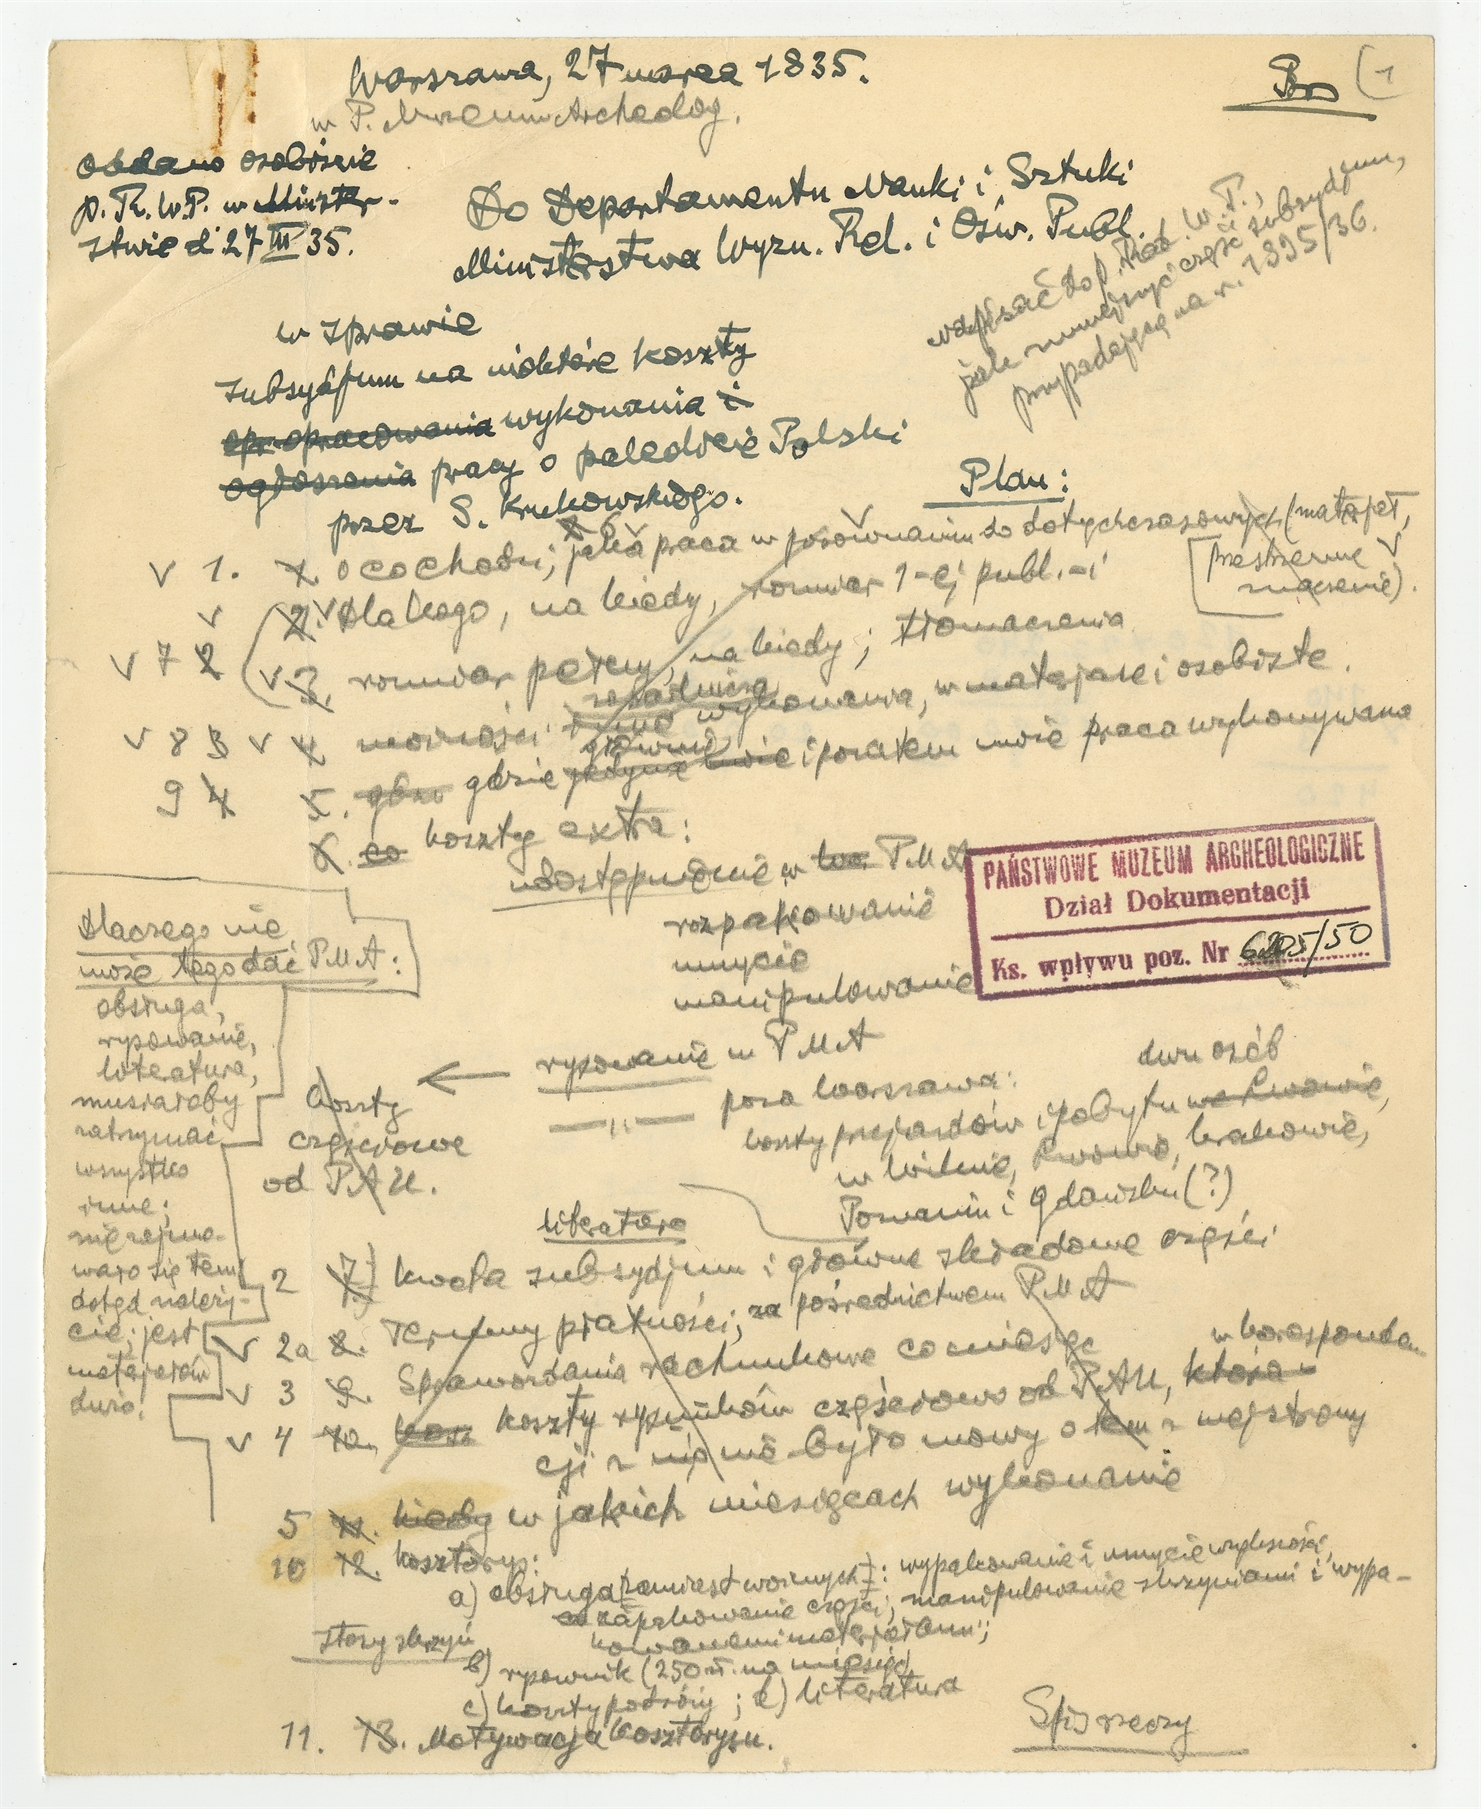 Warszawa, 27 marca 1835.
(1
w P. Muzeum Archeolog.
oddano osobiście
p. R. W. P. w Minister-
stwie d 27 III 35.
Do Departamentu Nauki i Sztuki
Ministerstwa Wyzn. Rel. i Ośw. Publ.
napisać do p. Rad. W. P.,
jak zmniejszyć część subsydjum,
przypadającą na r. 1935/36.
w sprawie
subsydjum na niektóre koszty
opracowania wykonania i
ogłoszenia pracy o paleolicie Polski
przez S. Krukowskiego.
Plan:
v 1. o co chodzi; jaka praca w porównaniu do dotychczasowych (materjał,
przestrzenne
znaczenie).
2. v dla kogo, na kiedy, rozmiar 1-ej publ. i
v 7 2 v 3. rozmiar pełny, na kiedy; tłomaczenia
zasadnicza
v 8 3 v 4. możność wykonania, w materjale i osobiste.
głównie
9 4 5. gdzie jedynie i pozatem może praca wykonywana
6. co koszty extra:
udostępnienie w PMA
rozpakowanie
mycie
manipulowanie
PAŃSTWOWE MUZEUM ARCHEOLOGICZNE
Dział Dokumentacji
Ks. wpływu poz. Nr 6205/50
dlaczego nie
może tego dać PMA:
obsługa,
rysowanie,
literatura,
musiałoby
zatrzymać
wszystko
inne;
nie zajmo-
wało się tem
dotąd należy-
cie; jest
materjałów
dużo.
rysowanie w PMA
koszty
częściowe
od PAU.
—"— poza Warszawą:
dwu osób
koszty przejazdów i pobytu we Lwowie,
w Wilnie, Lwowie, Krakowie,
Poznaniu i Gdańsku (?)
literatura
2 7. kwota subsydjum i główne składowe części
v 2a 8. Terminy płatności; za pośrednictwem PMA
v 3 9. Sprawozdania rachunkowe co miesiąc
v 4 10. koszty rysunków częściowo od PAU, która w koresponden
cji z nią nie było mowy o tem z mojej strony
5 11. kiedy w jakich miesiącach wykonanie
10 12. kosztorys:
a) obsługa (zamiast woźnych): wypakowanie i mycie większości,
zapakowanie części, manipulowanie skrzyniami i wypa-
kowanemi materjałami;
stosy skrzyń
b) rysownik (250 zł. na miesiąc)
c) koszty podróży; d) literatura
11. 13. Motywacja kosztorysu.
Spis rzeczy